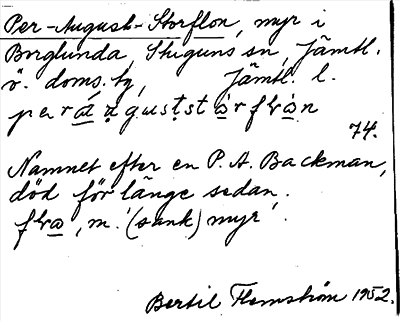 Per-August-Storflon, myr i
Borglunda, Stuguns sn, Jämtl.
ö. doms. tg, Jämtl. l.
74.
Namnet efter en P. A. Backman,
död för länge sedan.
m. '(sank) myr'.
Bertil Flemström 1952.